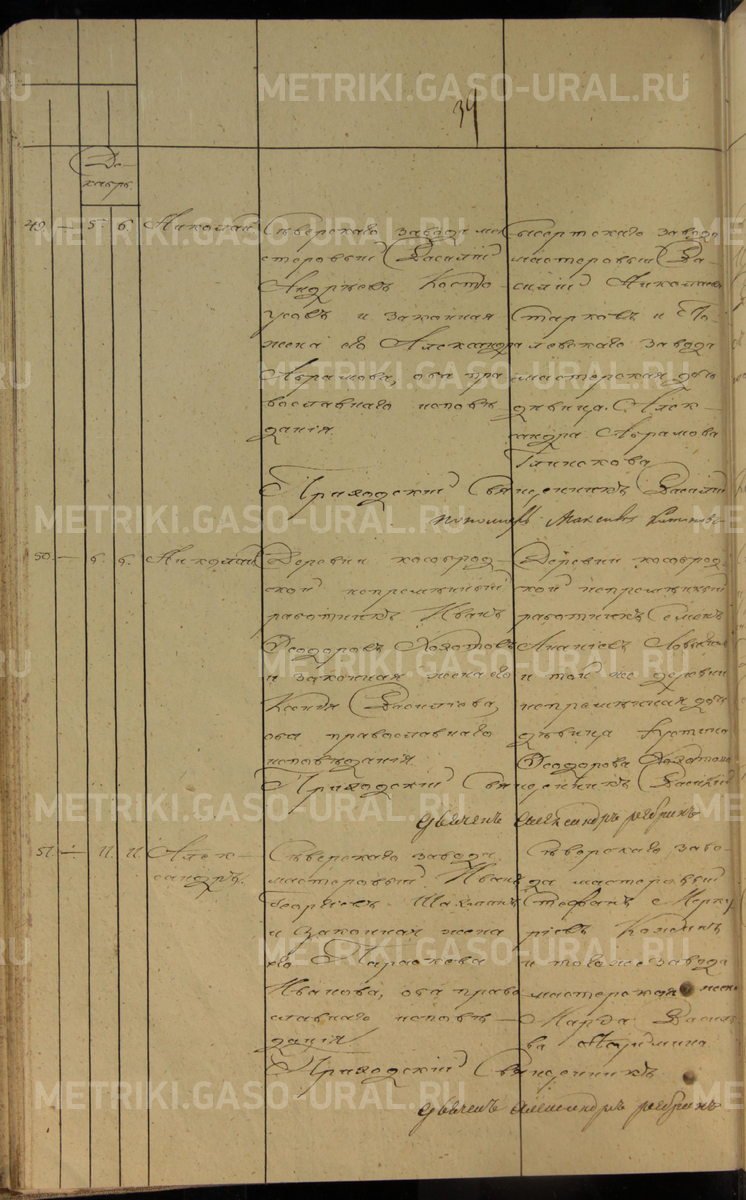 METRIKI.GASO-URAL.RU
34
Де-
кабрь
49. — 5. 6. Николай
Сѣверскаго завода ма
стеровый Василій
Андреевъ Косто
усовъ и законная
жена его Александра
Абрамова, оба пра
вославнаго исповѣ
данія.
Сысертскаго завода
мастеровый Ва-
силій Николаевъ
Старковъ и По-
левскаго завода
мастерская дѣ
вица Алек-
сандра Абрамова
Приходскій Священникъ Василій
50. — 6. 6. Николай
Деревни кособрод-
ской непремѣнный
работникъ Иванъ
Ѳеодоровъ
и законная жена его
Ксенія Василіева,
оба православнаго
исповѣданія.
Деревни кособрод-
кой непремѣнный
работникъ Семенъ
Ананіевъ
и той же деревни
непремѣнная дѣ
вица
Ѳеодорова
Приходскій Священникъ Василій
Священ. Александръ
51. — 11. 11. Алек-
сандръ.
Сѣверскаго завода
мастеровый Иванъ
Георгіевъ
и законная жена
его Параскева
Иванова, оба право
славнаго исповѣ-
данія
Сѣверскаго заво-
да мастеровый
Стефанъ Мерку
ріевъ
и того же завода
мастерская жена
Марѳа Василь
ева
Приходскій Священникъ
Священ. Александръ